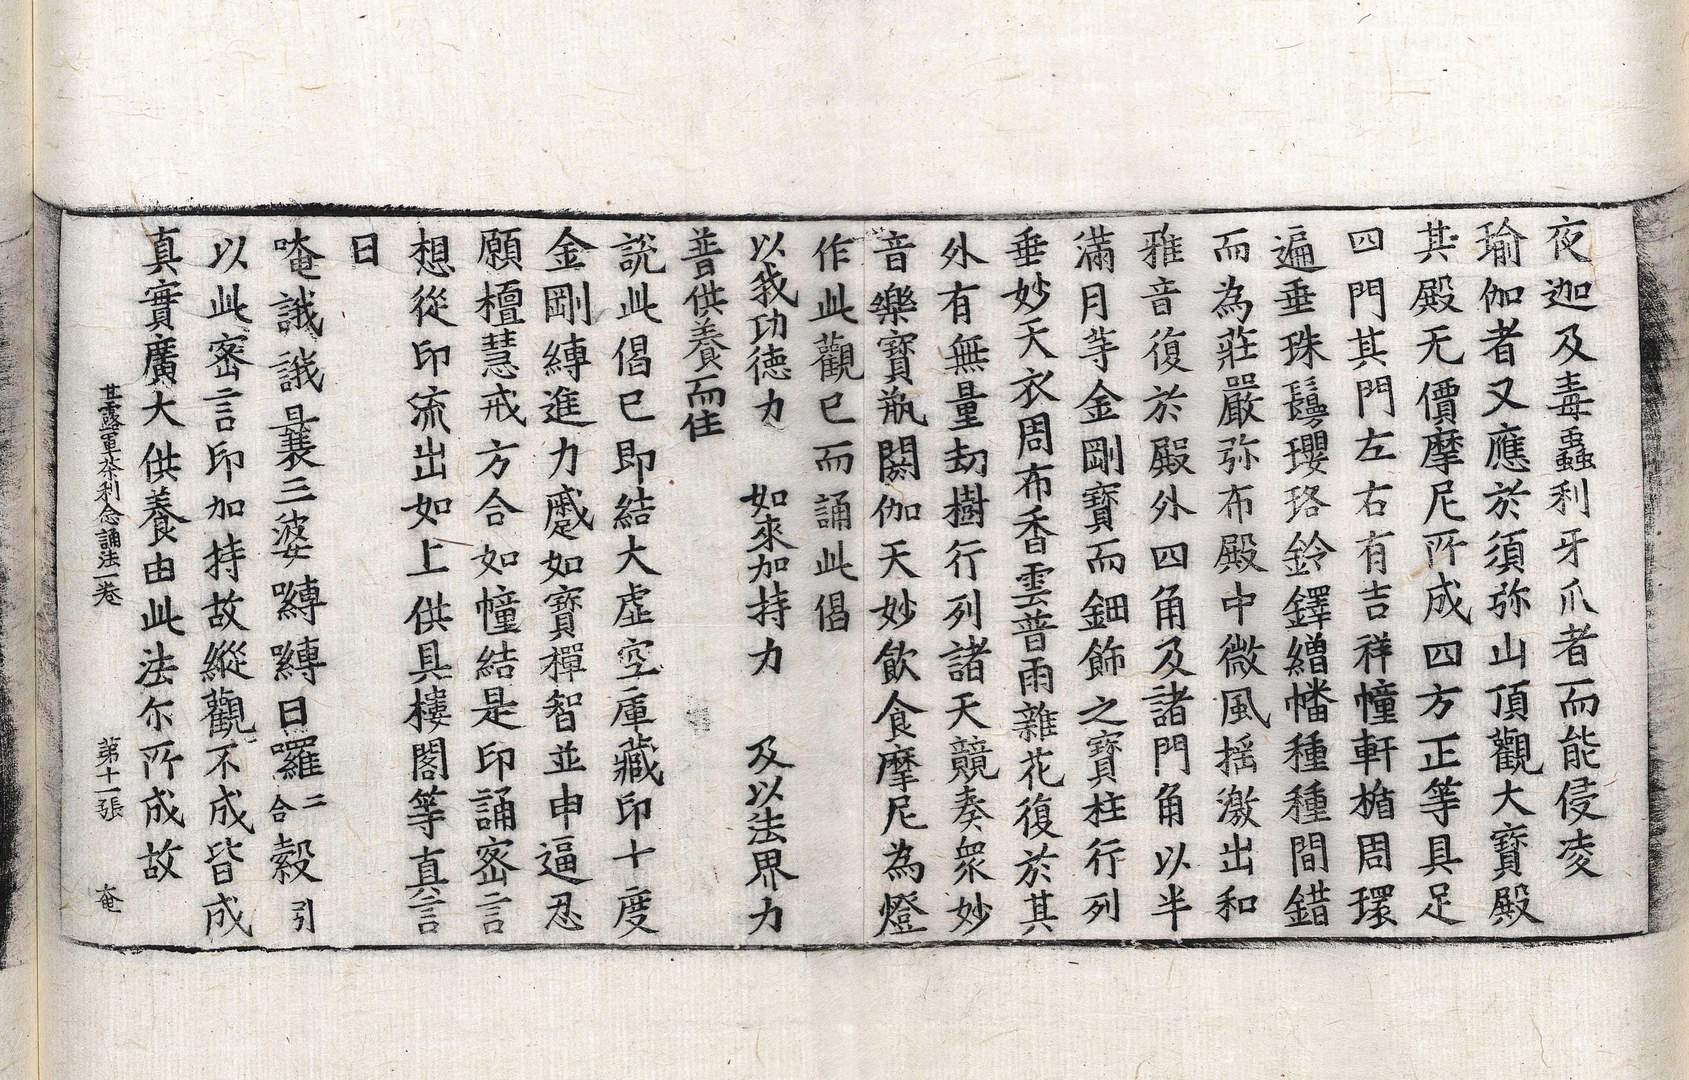 夜迦及毒蟲利牙爪者而能侵凌
瑜伽者又應於須弥山頂觀大寶殿
其殿无價摩尼所成四方正等具足
四門其門左右有吉祥幢軒楯周環
遍垂珠鬘瓔珞鈴鐸繒幡種種間錯
而為莊嚴弥布殿中微風搖激出和
雅音復於殿外四角及諸門角以半
滿月等金剛寶而鈿飾之寶柱行列
垂妙天衣周布香雲普雨雜花復於其
外有無量劫樹行列諸天競奏衆妙
音樂寶瓶閼伽天妙飲食摩尼為燈
作此觀已而誦此偈
以我功德力 如來加持力 及以法界力
普供養而住
說此偈已即結大虛空庫藏印十度
金剛縛進力蹙如寶禪智並申逼忍
願檀慧戒方合如幢結是印誦密言
想從印流出如上供具樓閣等真言
曰
唵誐誐曩三婆嚩嚩日囉二合穀引
以此密言印加持故縱觀不成皆成
真實廣大供養由此法尔所成故
甘露軍荼利念誦法一卷 第十一張 奄